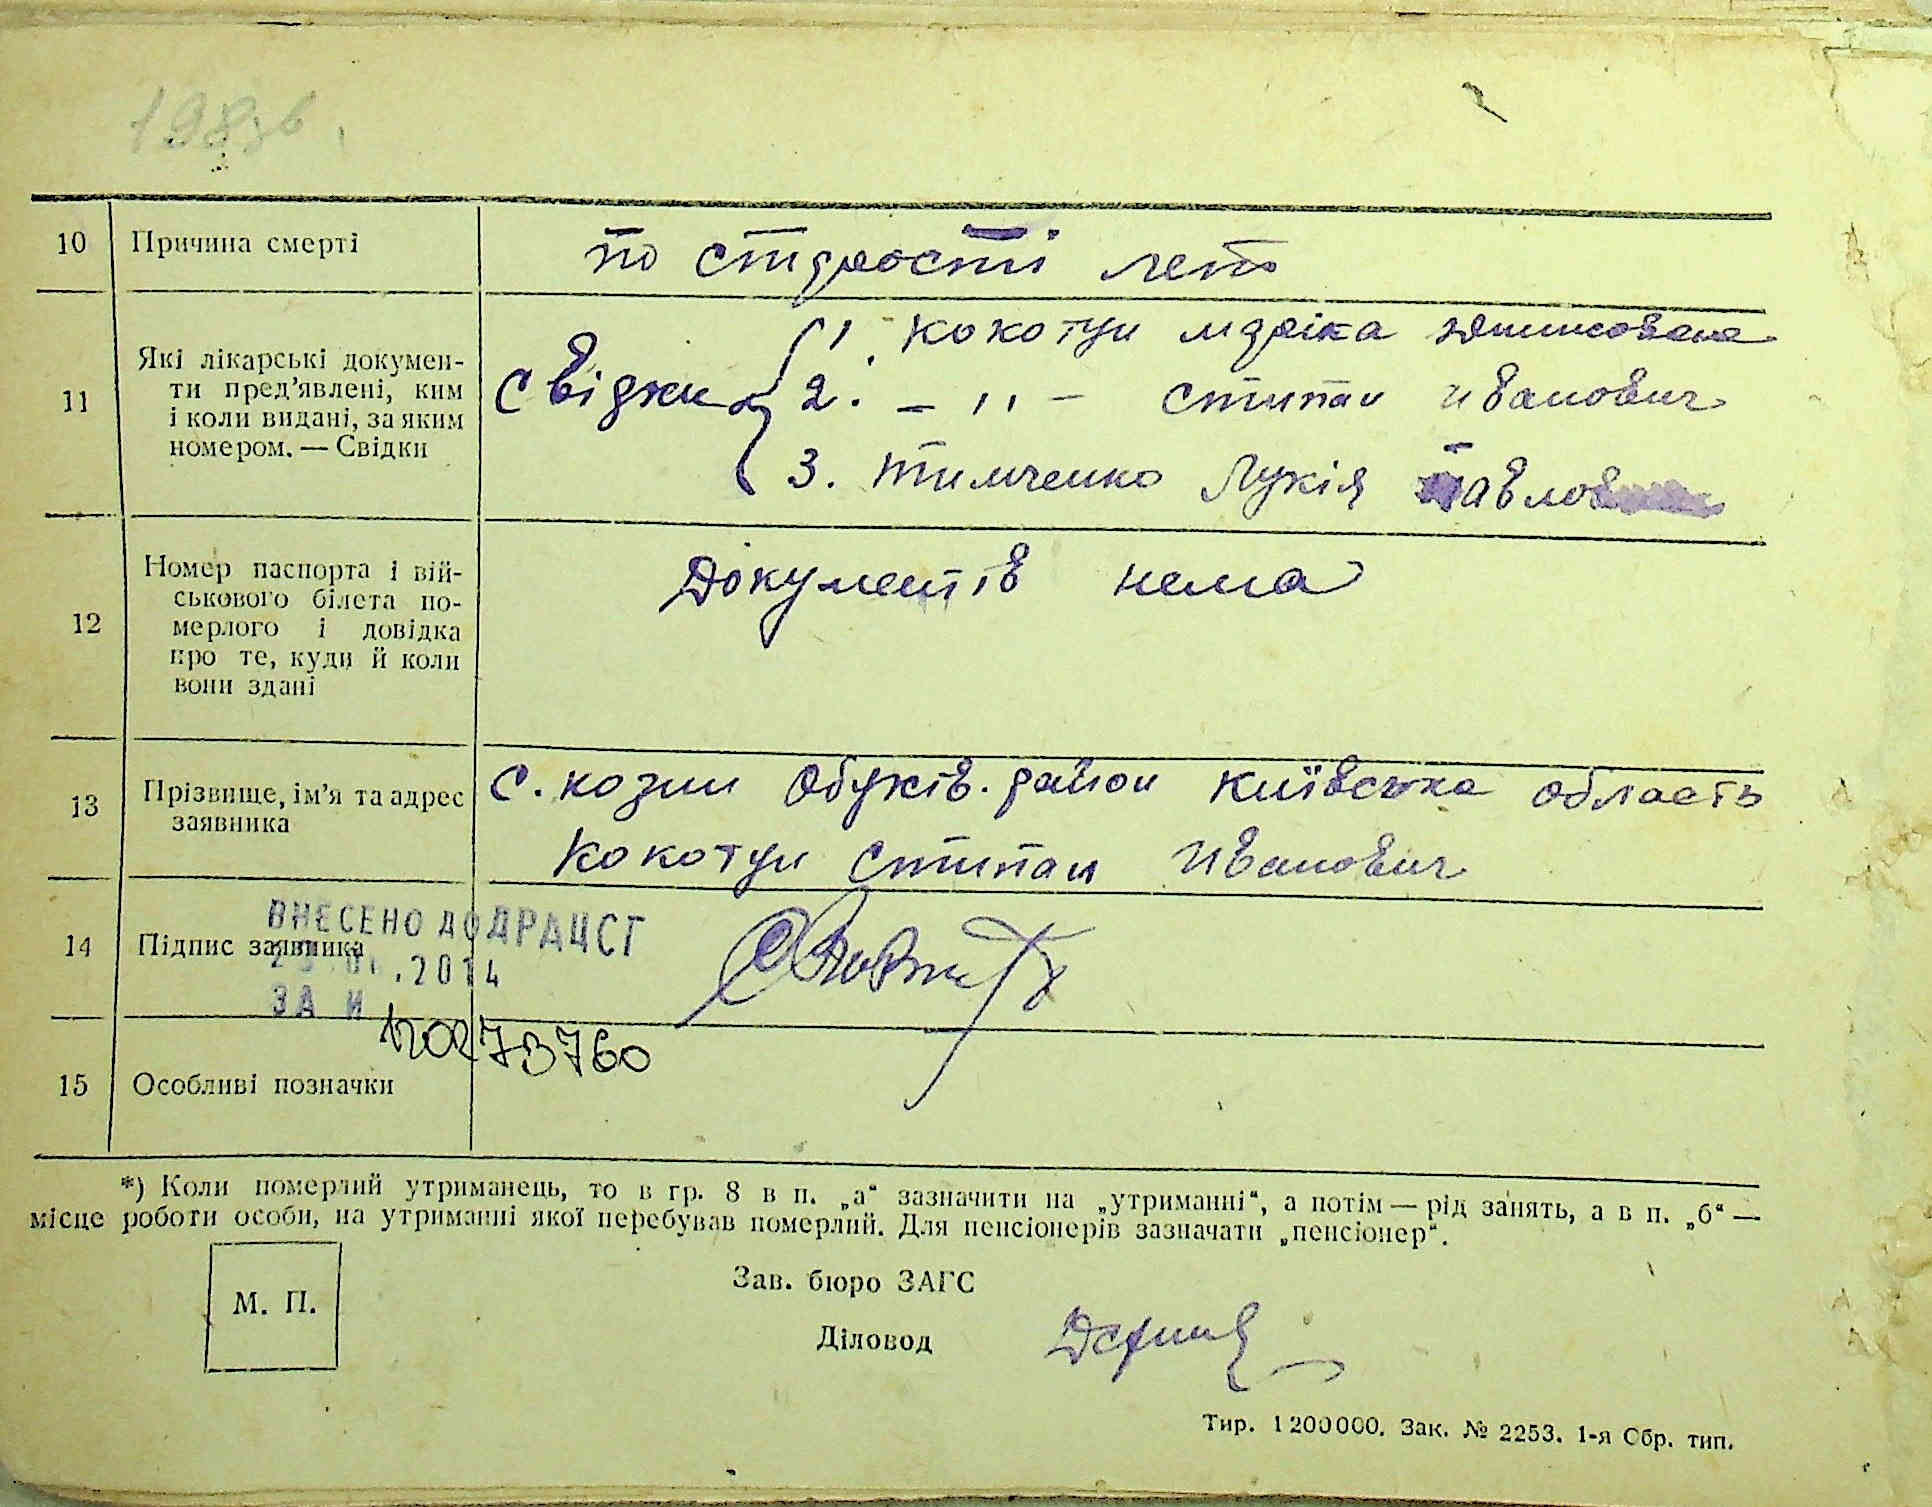 10 Причина смерті
по старості лет
11 Які лікарські докумен-
ти пред’явлені, ким
і коли видані, за яким
номером. — Свідки
Свідки 1. Кокотун Маріка
2. — „ — Стипан Иванович
3. Тимченко Лукія Павлов
12 Номер паспорта і вій-
ськового білета по-
мерлого і довідка
про те, куди й коли
вони здані
Документів нема
13 Прізвище, ім’я та адрес
заявника
с. козин Обухів. район Київська область
Кокотун Стипан Иванович
14 Підпис заявника
ВНЕСЕНО ДО ДРАЦСГ
.2014
ЗА И
15 Особливі позначки
*) Коли померлий утриманець, то в гр. 8 в п. „а“ зазначити на „утриманні“, а потім — рід занять, а в п. „б“ —
місце роботи особи, на утриманні якої перебував померлий. Для пенсіонерів зазначати „пенсіонер“.
М. П.
Зав. бюро ЗАГС
Діловод
Тир. 1200000. Зак. № 2253. 1-я Обр. тип.